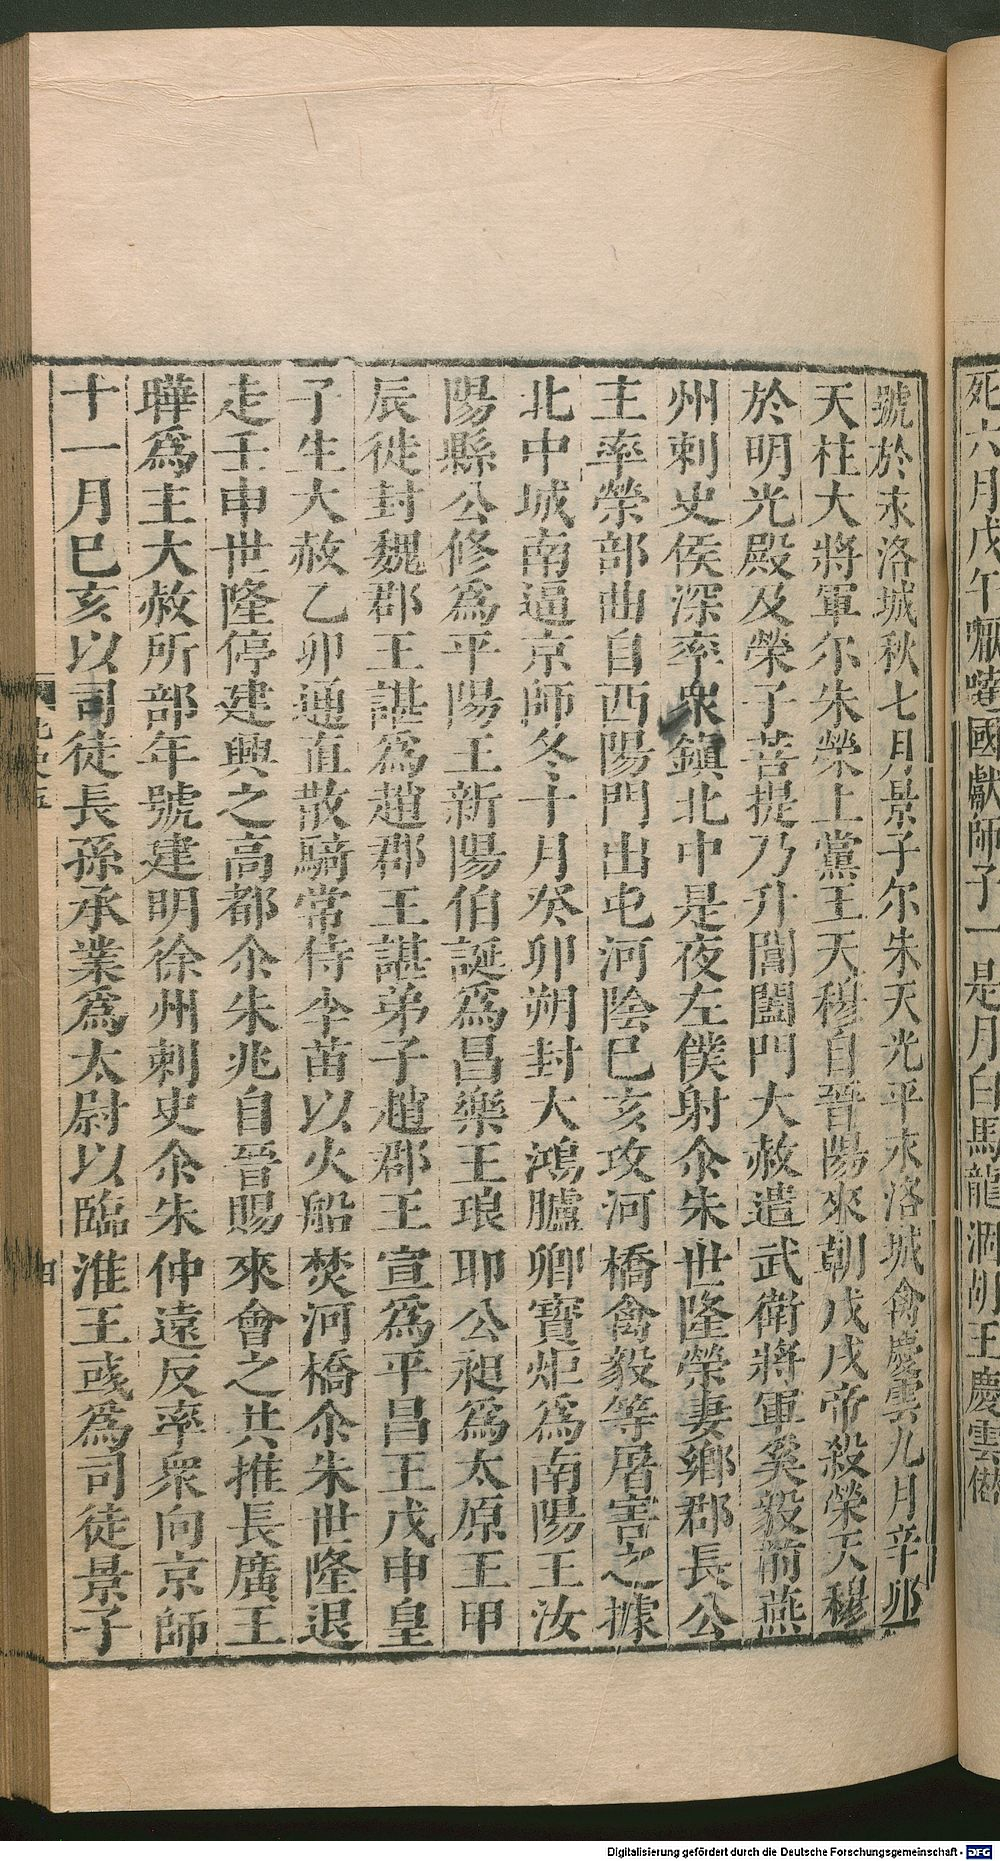 死六月戊午嚈噠國獻師子一是月白馬龍涸胡王慶雲僭
號於水洛城秋七月景子尔朱天光平水洛城禽慶雲九月辛卯
天柱大將軍尔朱榮上黨王天穆自晉陽來朝戊戌帝殺榮天穆
於明光殿及榮子菩提乃升閶闔門大赦遣武衛將軍奚毅前燕
州刺史侯深率衆鎮北中是夜左僕射尒朱世隆榮妻鄉郡長公
主率榮部曲自西陽門出屯河陰巳亥攻河橋禽毅等屠害之據
北中城南逼京師冬十月癸卯朔封大鴻臚卿寶炬爲南陽王汝
陽縣公修爲平陽王新陽伯誕爲昌樂王琅耶公昶爲太原王甲
辰徙封魏郡王諶爲趙郡王諶弟子趙郡王宣爲平昌王戊申皇
子生大赦乙卯通直散騎常侍李苗以火船焚河橋尒朱世隆退
走壬申世隆停建興之高都尒朱兆自晉賜來會之共推長廣王
曄爲主大赦所部年號建明徐州刺史尒朱仲遠反率眾向京師
十一月巳亥以司徒長孫承業爲太尉以臨淮王彧爲司徒景子
Digitalisierung gefördert durch die Deutsche Forschungsgemeinschaft - DFG